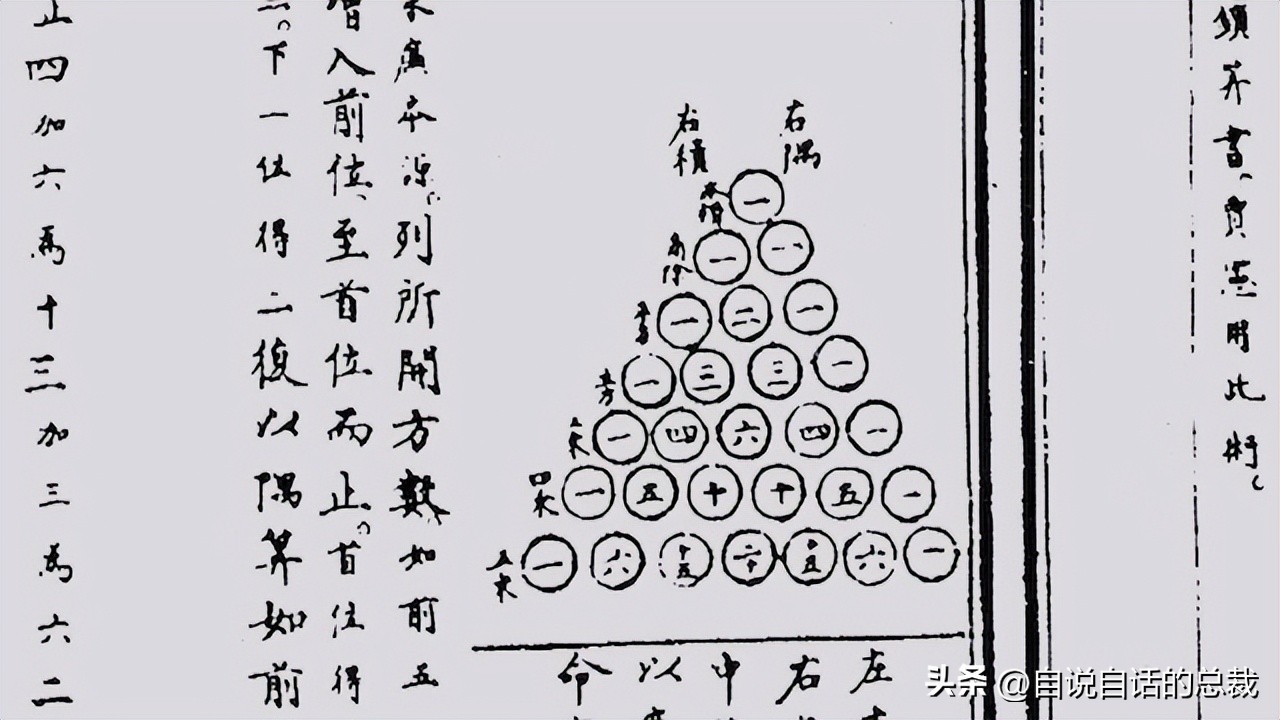 鎖筭書、賈憲用此術、
右隅
右積
本積
一
商除
一 一
平方
一 二 一
立方
一 三 三 一
三乘
一 四 六 四 一
四乘
一 五 十 十 五 一
五乘
一 六 十五 二十 十五 六 一
左
右
中
以
命
求廉本源。列所開方數如前五
增入前位、至首位而止。首位得
下一位得二復以隅筭如前
止四加六爲十三加三為六二
头条 @自说自话的总裁